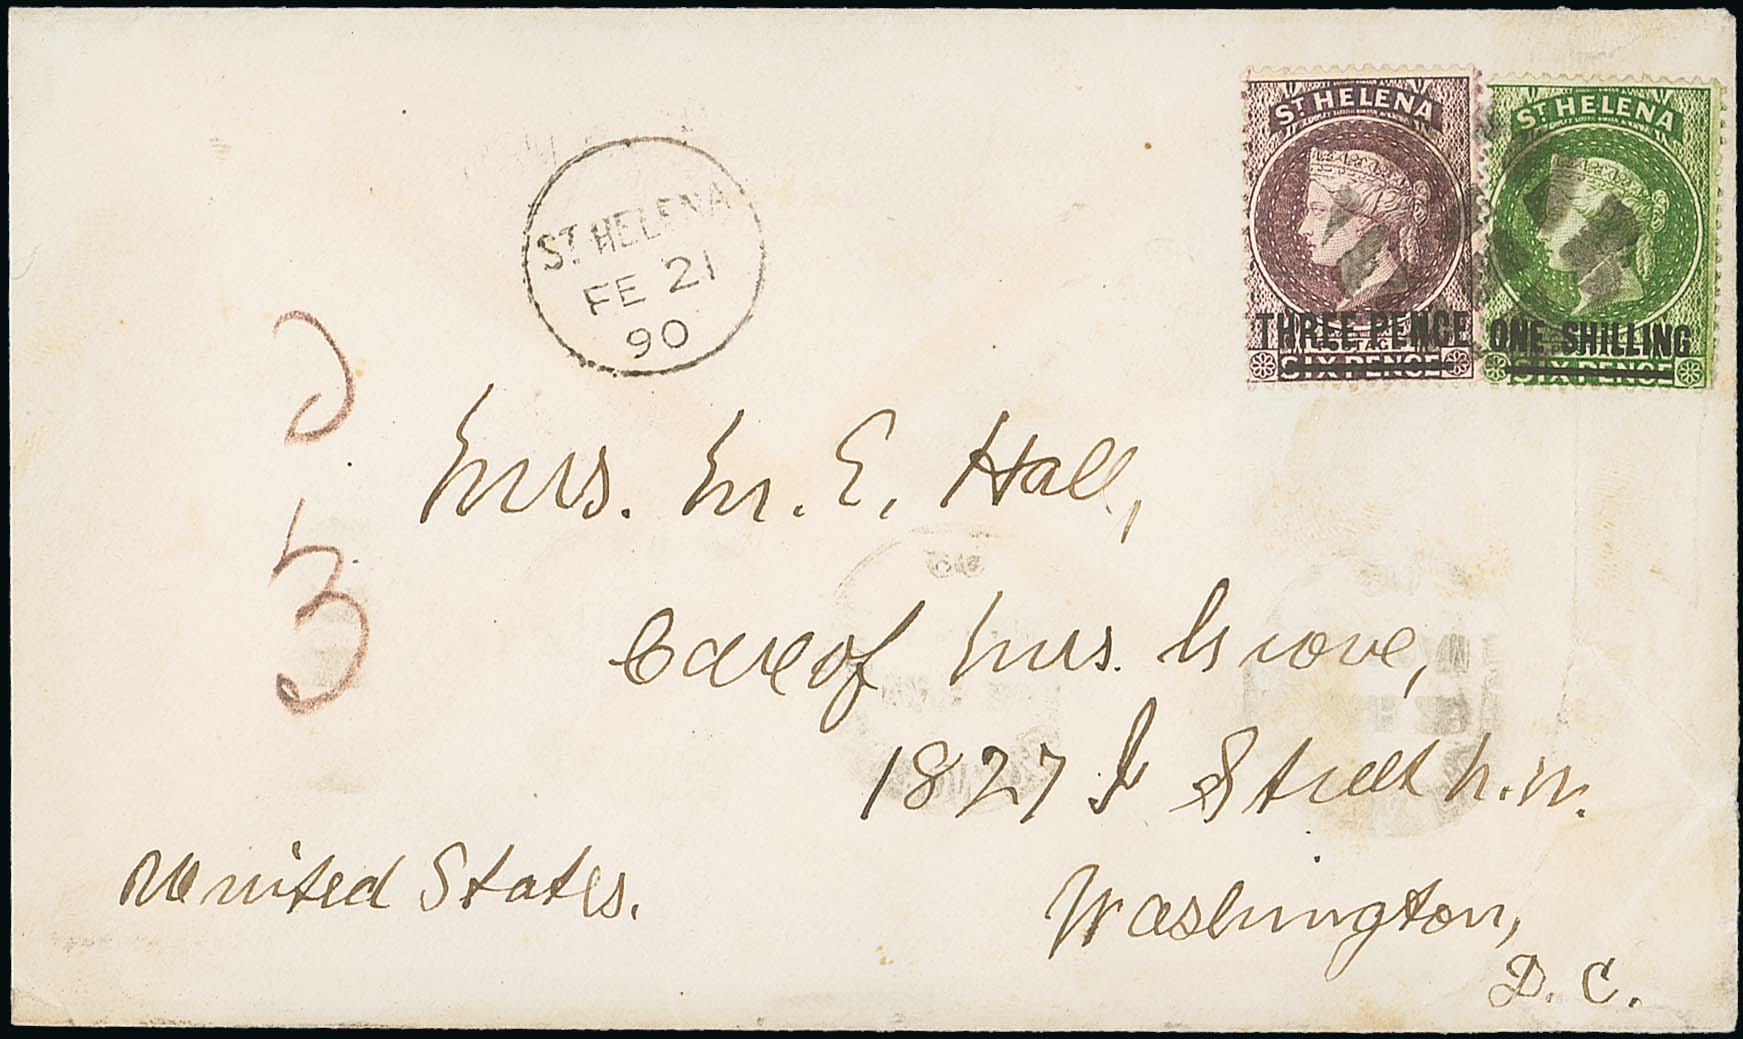 ST HELENA
THREE PENCE
SIX PENCE
ST HELENA
ONE SHILLING
SIX PENCE
ST. HELENA
FE 21
90
Mrs. M. E. Hall,
Care of Mrs. Grove,
1827 I Street N.W.
Washington,
D. C.
United States.